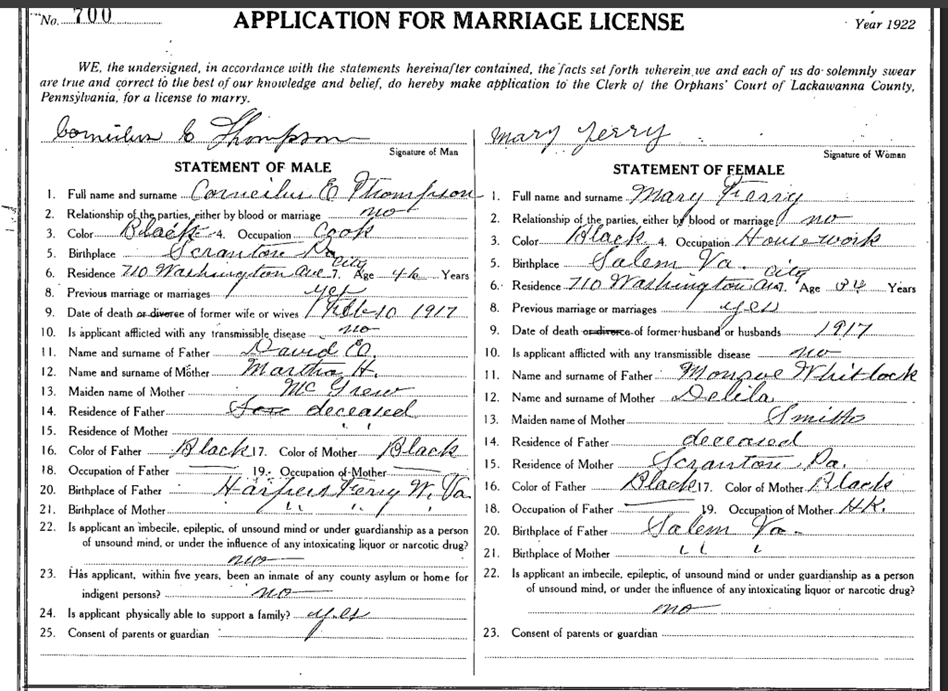 No. 700
APPLICATION FOR MARRIAGE LICENSE
Year 1922
WE, the undersigned, in accordance with the statements hereinafter contained, the facts set forth wherein we and each of us do solemnly swear
are true and correct to the best of our knowledge and belief, do hereby make application to the Clerk of the Orphans' Court of Lackawanna County,
Pennsylvania, for a license to marry.
Corneilus E Thompson
Signature of Man
STATEMENT OF MALE
1. Full name and surname Corneilus E Thompson
2. Relationship of the parties, either by blood or marriage no
3. Color Black 4. Occupation Cook
5. Birthplace Scranton Pa
6. Residence 710 Washington Ave City 7. Age Years
8. Previous marriage or marriages yes
9. Date of death or divorce of former wife or wives Feb 10 1917
10. Is applicant afflicted with any transmissible disease no
11. Name and surname of Father David E.
12. Name and surname of Mother Martha H.
13. Maiden name of Mother McGrew
14. Residence of Father deceased
15. Residence of Mother " "
16. Color of Father Black 17. Color of Mother Black
18. Occupation of Father — 19. Occupation of Mother —
20. Birthplace of Father Harpers Ferry W. Va.
21. Birthplace of Mother " " "
22. Is applicant an imbecile, epileptic, of unsound mind or under guardianship as a person
of unsound mind, or under the influence of any intoxicating liquor or narcotic drug?
no
23. Has applicant, within five years, been an inmate of any county asylum or home for
indigent persons? no
24. Is applicant physically able to support a family? yes
25. Consent of parents or guardian
Mary Ferry
Signature of Woman
STATEMENT OF FEMALE
1. Full name and surname Mary Ferry
2. Relationship of the parties, either by blood or marriage no
3. Color Black 4. Occupation Housework
5. Birthplace Salem Va.
6. Residence 710 Washington Ave City 7. Age 34 Years
8. Previous marriage or marriages yes
9. Date of death or divorce of former husband or husbands 1917
10. Is applicant afflicted with any transmissible disease no
11. Name and surname of Father Monroe Whitlock
12. Name and surname of Mother Delila
13. Maiden name of Mother Smith
14. Residence of Father deceased
15. Residence of Mother Scranton, Pa.
16. Color of Father Black 17. Color of Mother Black
18. Occupation of Father — 19. Occupation of Mother H.K.
20. Birthplace of Father Salem Va.
21. Birthplace of Mother " "
22. Is applicant an imbecile, epileptic, of unsound mind or under guardianship as a person
of unsound mind, or under the influence of any intoxicating liquor or narcotic drug?
no
23. Consent of parents or guardian